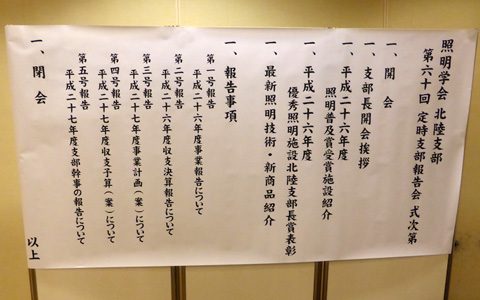 照明学会 北陸支部
第六十回 定時支部報告会 式次第
一、開会
一、支部長開会挨拶
一、平成二十六年度
照明普及賞受賞施設紹介
一、平成二十六年度
優秀照明施設北陸支部長賞表彰
一、最新照明技術・新商品紹介
一、報告事項
第一号報告
平成二十六年度事業報告について
第二号報告
平成二十六年度収支決算報告について
第三号報告
平成二十七年度事業計画(案)について
第四号報告
平成二十七年度収支予算(案)について
第五号報告
平成二十七年度支部幹事の報告について
一、閉会
以上